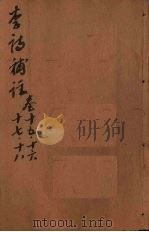 李詩補註
卷十五十六
十七十八
研狗